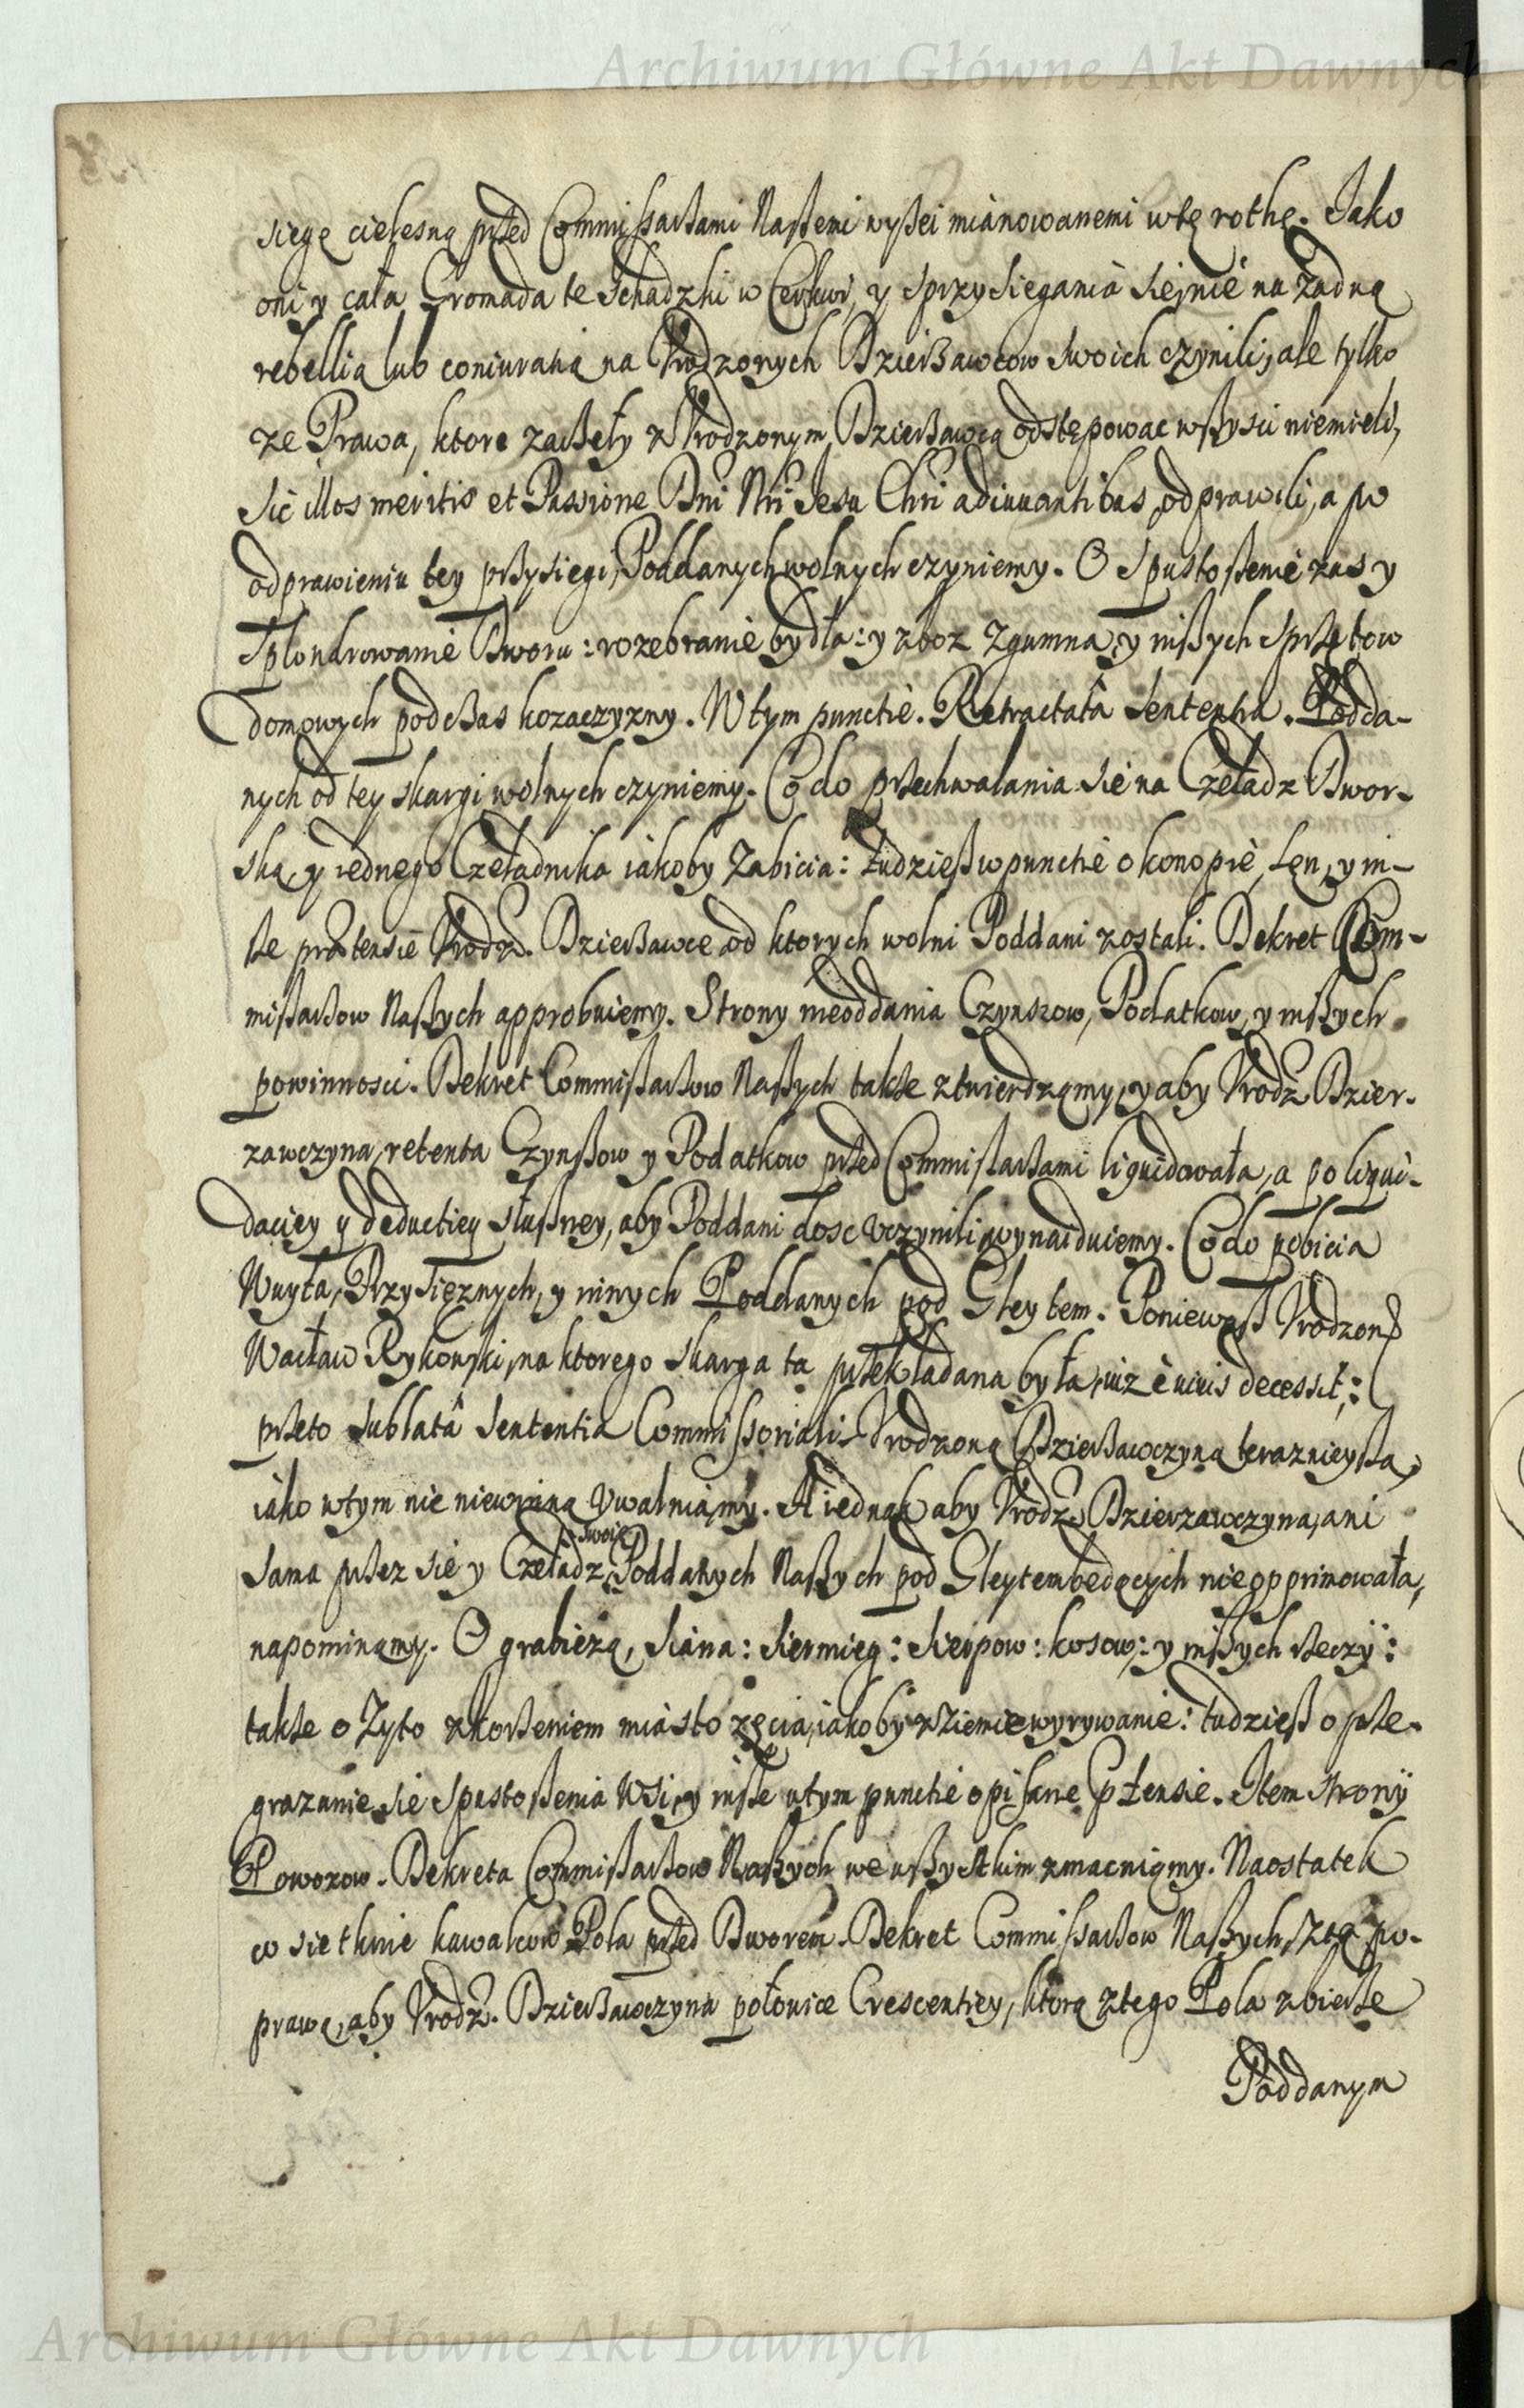 Archiwum Główne Akt Dawnych
sięgę cielesną przed Commissarzami Naszemi wyszei mianowanemi w tę rothę. Jako
oni y cała Gromada te schadzki w Cerkwi, y sprzysiegania się, nie na żadną
rebellią lub coniuratią na Urodzonych Dzierżawcow swoich czynili, ale tylko
ze Prawa, ktore zaszeły z Urodzonym Dzierżawcą odstępowac wszysci niemieli,
Sic illos meritis et Passione Dni Nri Jesu Chri adiuuantibus, odprawili, a po
odprawieniu tey przysiegi, Poddanych wolnych czyniemy. O Spustoszenie zas y
Splondrowanie Dworu: rozebranie bydła: y zboz z gumna, y inszych sprzętow
domowych podczas kozaczyzny. W tym punctie. Retractatâ sententia. Podda-
nych od tey skargi wolnych czyniemy. Co do przechwalania sie na Czeladz Dwor-
ską, y iednego Czeladnika iakoby zabicia: tudziesz w punctie o konopie, Len, y in-
sze prætensie Urodz. Dzierżawce od ktorych wolni Poddani zostali. Dekret Com-
missarzow Naszych approbuiemy. Strony nieoddania Czynszow, Podatkow, y inszych
powinnosci. Dekret Commissarzow Naszych takze ztwierdzamy, y aby Urodz. Dzier-
zawczyna, retenta Czynszow y Podatkow przed Commissarzami liquidowała, a po liqui-
daciey y deductiey słuszney, aby Poddani dosc uczynili, wynaiduiemy. Co do pobicia
Wuyta, Przysięznych, y innych Poddanych pod Gleytem. Poniewasz Urodzony
Wacław Rykowski, na ktorego skarga ta przekładana była, iuz è uiuis decessit:
przeto sublatâ sententia Commissoriali Urodzoną Dzierżawczyną teraznieyszą,
iako w tym nie niewinną uwalniamy. A iednak aby Urodz. Dzierzawczyna, ani
swoię
sama przez sie y Czeladz Poddanych Naszych pod Gleytem będących nie opprimowała,
napominamy. O grabieżą, siana: siermięg: sierpow: kosow: y inszych rzeczy:
takze o Zyto z korzeniem miasto zęcia, iakoby z ziemie wyrywanie: tudziesz o prze-
grazanie sie spustoszenia Wsi, y insze w tym punctie opisane ptensie. Item strony
Powozow. Dekreta Commissarzow Naszych we wszystkim zmacniamy. Naostatek
w sietknie kawalcow Pola przed Dworem. Dekret Commissarzow Naszych, z tą po-
prawą, aby Urodz. Dzierżawczyna połowice Crescentiey, ktorą z tego Pola zbierze
Poddanym
Archiwum Główne Akt Dawnych